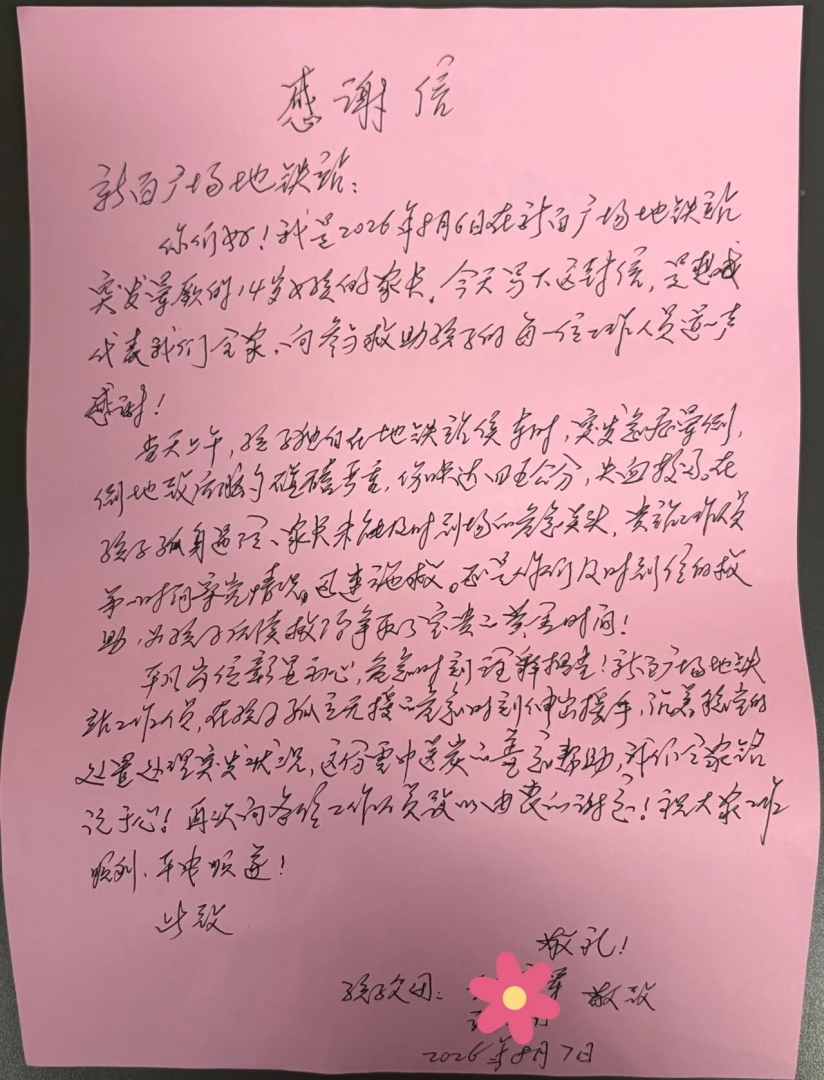 感谢信
新百广场地铁站:
你们好!我是2026年8月6日在新百广场地铁站
突发晕厥的14岁女孩的家长。今天写下这封信,是想
代表我们全家,向参与救助孩子的每一位工作人员道一声
感谢!
当天上午,孩子独自在地铁站候车时,突发急症晕倒,
倒地致后脑勺磕碰严重,伤口达四五公分,失血较多。在
孩子孤身遇险、家长未能及时到场的危急关头,贵站工作人员
第一时间察觉情况。迅速施救。正是你们及时到位的救
助,为孩子后续救治争取了宝贵的黄金时间!
平凡岗位彰显初心,危急时刻诠释担当!新百广场地铁
站工作人员,在孩子孤立无援的危急时刻伸出援手,沉着稳定的
处置处理突发状况,这份雪中送炭的善意帮助,我们全家铭
记于心!再次向贵站工作人员致以由衷的谢意!祝大家工作
顺利、平安顺遂!
此致
敬礼!
孩子父母: 敬致
2026年8月7日